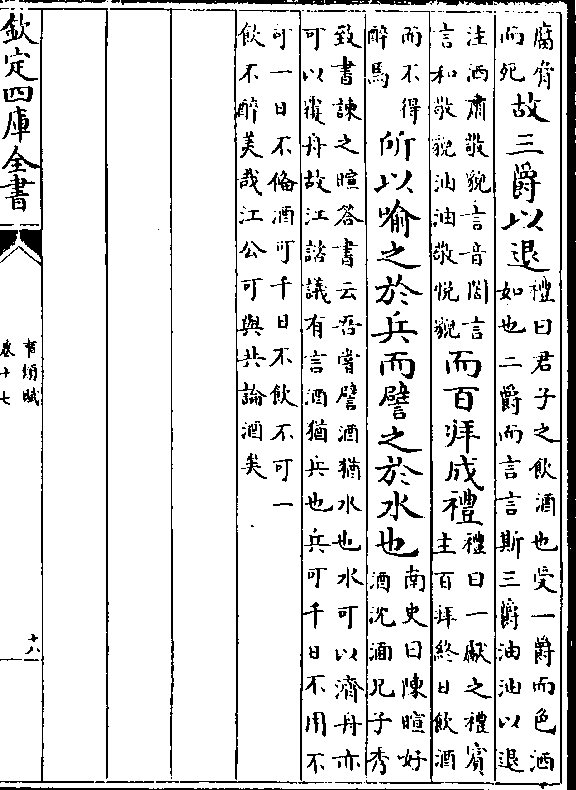 腐脅
而死
故三爵以退
禮曰君子之飲酒也受一爵而色洒
如也二爵而言言斯三爵油油以退
注洒肅敬貌言音誾言
言和敬貌油油敬悦貌
而百拜成禮
禮曰一獻之禮賓
主百拜終日飲酒
而不得
醉焉
所以喻之於兵而譬之於水也
南史曰陳暄好
酒沈湎兄子秀
致書諫之暄答書云吾嘗譬酒猶水也水可以濟舟亦
可以覆舟故江諮議有言酒猶兵也兵可千日不用不
可一日不備酒可千日不飲不可一
飲不醉美哉江公可與共論酒矣
欽定四庫全書
事類賦
卷十七
十八